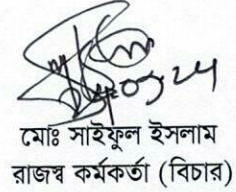 মোঃ সাইফুল ইসলাম
রাজস্ব কর্মকর্তা (বিচার)